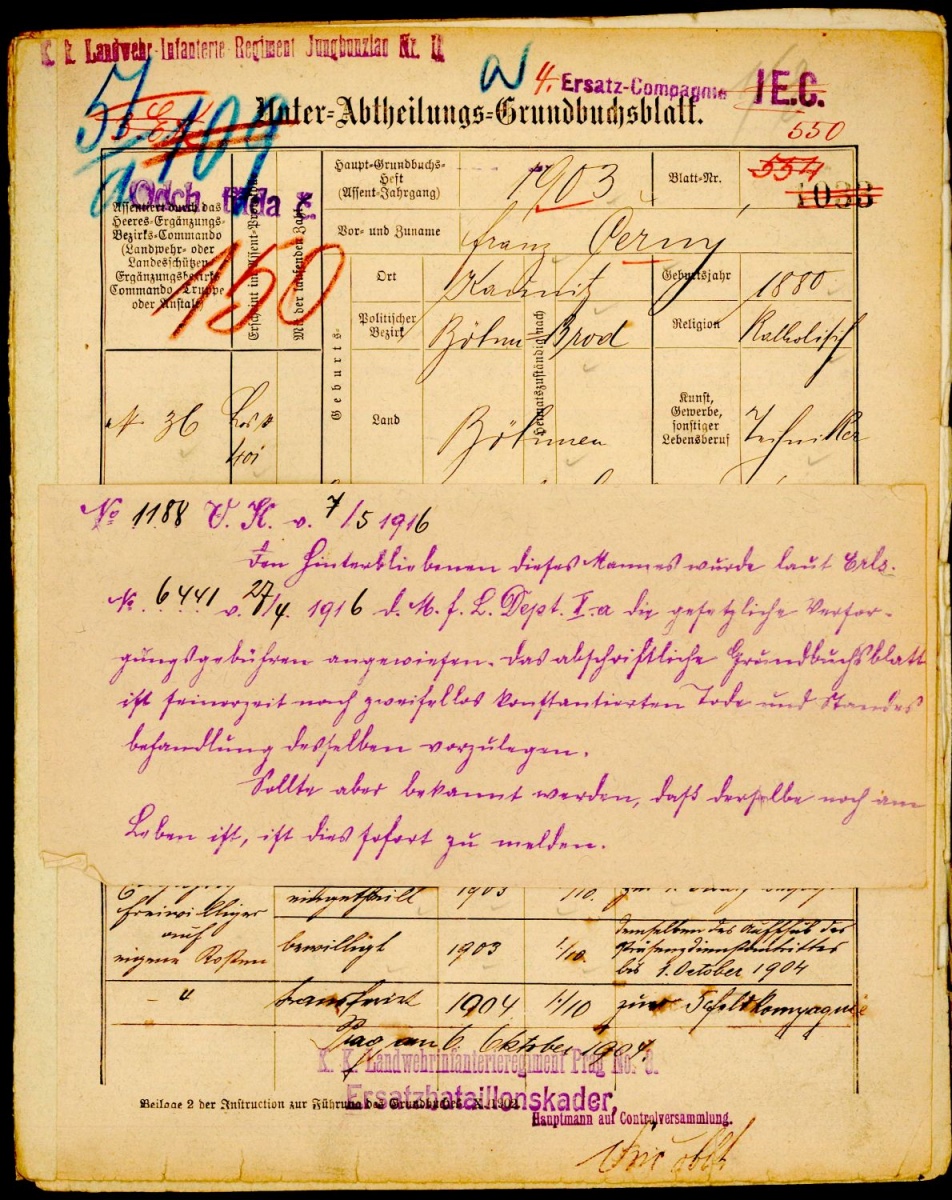 K. k. Landwehr-Infanterie-Regiment Jungbunzlau Nr.
4. Ersatz-Compagnie I E.C.
57 109
a
Unter-Abtheilungs-Grundbuchsblatt.
550
Assentiert durch das Heeres-Ergänzungs-Bezirks-Commando (Landwehr- oder Landesschützen-Ergänzungsbezirks-Commando, Truppe oder Anstalt)
150
Haupt-Grundbuchs-Heft (Assent-Jahrgang) 1903
Blatt-Nr. 554 1033
Vor- und Zuname Franz Černý
Geburts-
Ort Kaunitz
Heimatszuständig nach
Geburtsjahr 1880
Politischer Bezirk Böhm-Brod
Religion Katholisch
Land Böhmen
Kunst, Gewerbe, sonstiger Lebensberuf Techniker
36
No 1188 V. K. v. 7/5 1916
Den Hinterbliebenen dieses Mannes wurde laut Erls.
No. 6441 v. 27/4. 1916 d. M. f. L. Dept. I-a die gesetzliche Versor-
gungsgebühren angewiesen. Das abschriftliche Grundbuchsblatt
ist seinerzeit nach zweifellos konstantierten Tode und Standes
behandlung desselben vorzulegen.
Sollte aber bekannt werden, daß derselbe noch am
Leben ist, ist dies sofort zu melden.
eingetheilt 1903 1/10.
freiwilliger auf eigene Kosten
bewilligt 1903 1/10. demselben der Aufschub des Präsenzdienstantrittes bis 1. October 1904
transferirt 1904 1/10 zur Feldkompagnie
Prag am 6. Oktober 1904.
K. K. Landwehrinfanterieregiment Prag No. 8.
Ersatzbataillonskader,
Beilage 2 der Instruction zur Führung des Grundbuches
Hauptmann auf Controlversammlung.